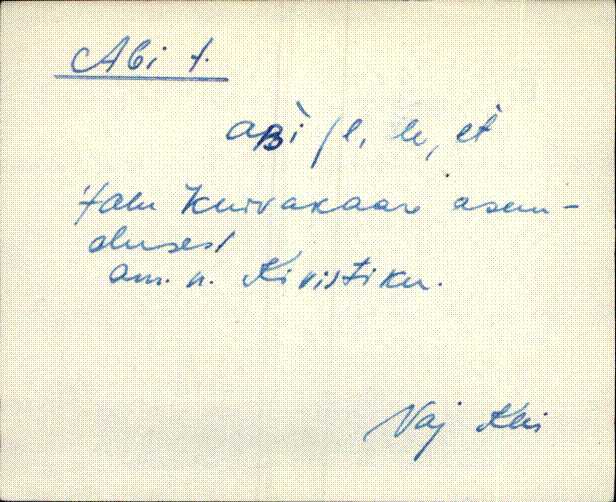 Abi t.
aʙ̀i /l, le, èt
talu Kuivakaare asun-
duses
am. n. Kivistiku.
Vaj Khi